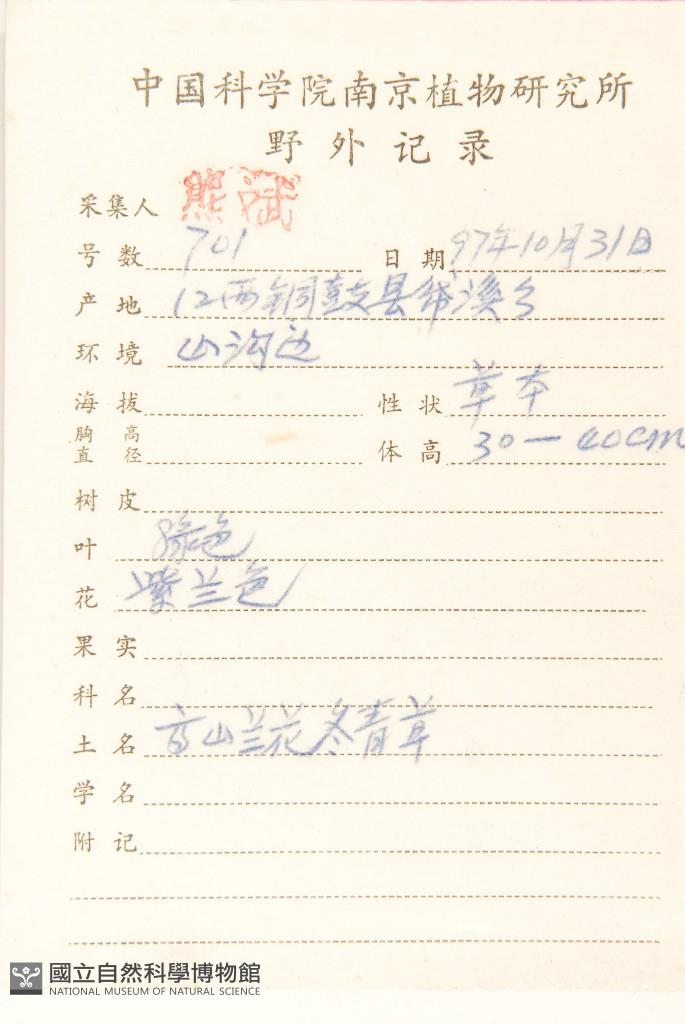 中国科学院南京植物研究所
野外记录
采集人 熊斌
号数 701 日期 97年10月31日
产地 江西铜鼓县 溪乡
环境 山沟边
海拔 性状 草本
胸高直径 体高 30—40cm
树皮
叶 绿色
花 紫兰色
果实
科名
土名 高山兰花冬青草
学名
附记
國立自然科學博物館
NATIONAL MUSEUM OF NATURAL SCIENCE